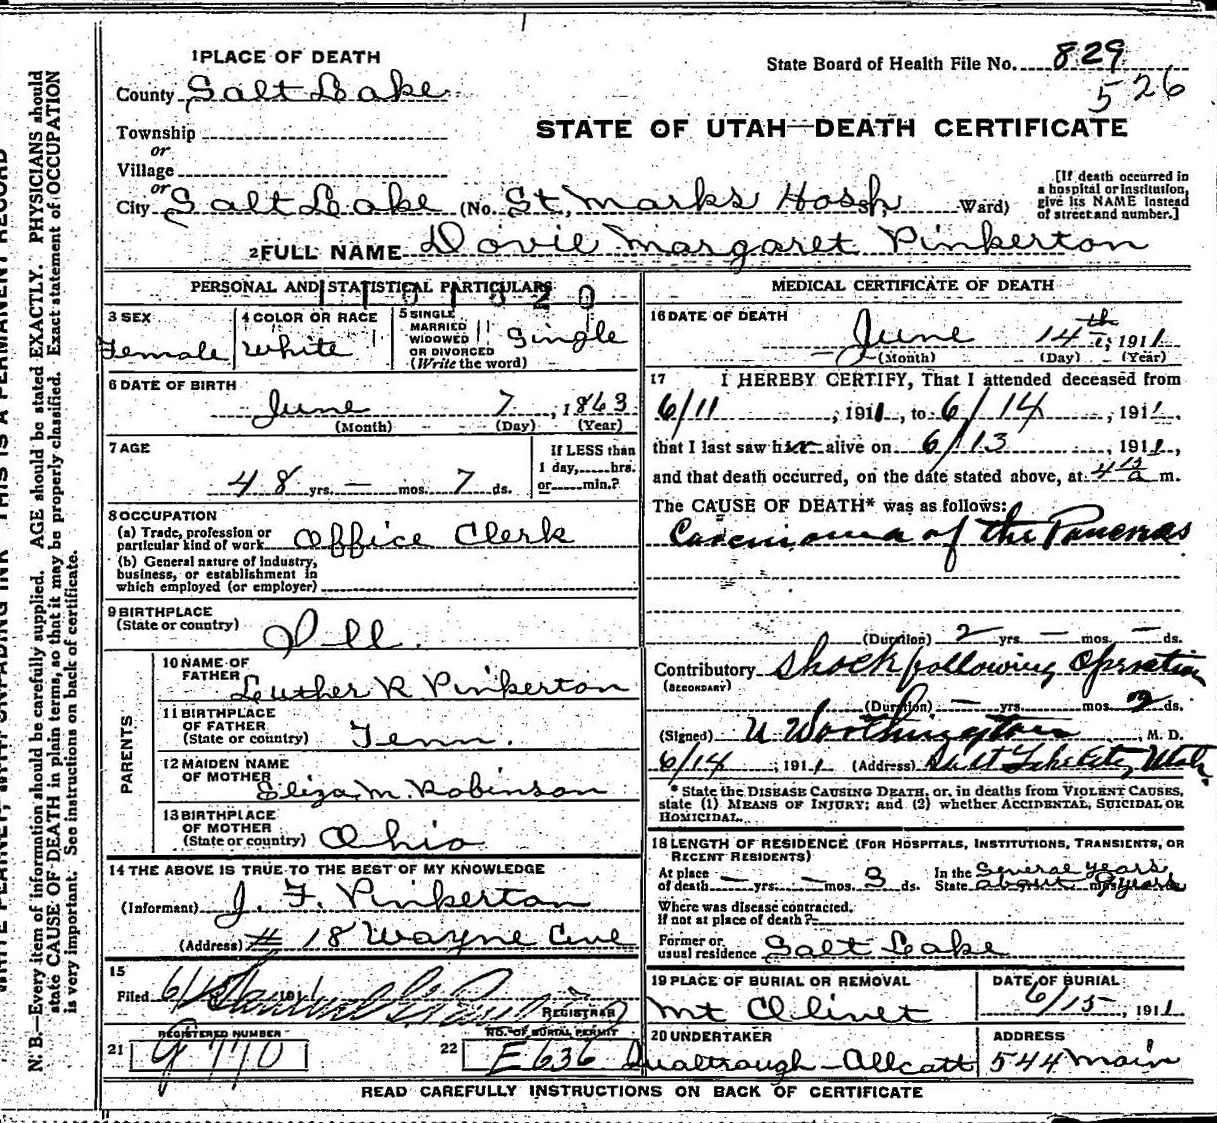 1 PLACE OF DEATH
County Salt Lake
Township
or
Village
or
City Salt Lake (No. St. Marks Hosp. St., Ward)
State Board of Health File No. 829
526
STATE OF UTAH—DEATH CERTIFICATE
[If death occurred in
a hospital or institution,
give its NAME instead
of street and number.]
2 FULL NAME Dovie Margaret Pinkerton
PERSONAL AND STATISTICAL PARTICULARS
3 SEX
Female
4 COLOR OR RACE
White
5 SINGLE
MARRIED
WIDOWED
OR DIVORCED
(Write the word)
Single
6 DATE OF BIRTH
June 7, 1863
(Month) (Day) (Year)
7 AGE
48 yrs. — mos. 7 ds.
If LESS than
1 day, hrs.
or min.?
8 OCCUPATION
(a) Trade, profession or
particular kind of work Office Clerk
(b) General nature of industry,
business, or establishment in
which employed (or employer)
9 BIRTHPLACE
(State or country)
Ill.
PARENTS
10 NAME OF
FATHER
Leuther R Pinkerton
11 BIRTHPLACE
OF FATHER
(State or country)
Tenn.
12 MAIDEN NAME
OF MOTHER
Eliza M. Robinson
13 BIRTHPLACE
OF MOTHER
(State or country)
Ohio
14 THE ABOVE IS TRUE TO THE BEST OF MY KNOWLEDGE
(Informant) J. F. Pinkerton
(Address) # 18 Wayne Ave
15
Filed 6/ 1911
REGISTRAR
REGISTERED NUMBER
21 g 770
NO. OF BURIAL PERMIT
22 E636
MEDICAL CERTIFICATE OF DEATH
16 DATE OF DEATH
June 14th, 1911
(Month) (Day) (Year)
17 I HEREBY CERTIFY, That I attended deceased from
6/11, 1911, to 6/14, 1911,
that I last saw her alive on 6/13, 1911,
and that death occurred, on the date stated above, at 4 15 a m.
The CAUSE OF DEATH* was as follows:
Carcinoma of the Pancreas
(Duration) 2 yrs. — mos. — ds.
Contributory Shock following Operation
(SECONDARY)
(Duration) — yrs. mos. 2 ds.
(Signed) U Worthington, M. D.
6/14, 1911 (Address) Salt Lake City, Utah
* State the DISEASE CAUSING DEATH, or, in deaths from VIOLENT CAUSES,
state (1) MEANS OF INJURY; and (2) whether ACCIDENTAL, SUICIDAL OR
HOMICIDAL.
18 LENGTH OF RESIDENCE (FOR HOSPITALS, INSTITUTIONS, TRANSIENTS, OR
RECENT RESIDENTS)
At place
of death — yrs. — mos. 3 ds.
In the
State Several years about 9 years
Where was disease contracted,
If not at place of death?
Former or
usual residence Salt Lake
19 PLACE OF BURIAL OR REMOVAL
Mt Olivet
DATE OF BURIAL
6/15, 1911
20 UNDERTAKER
Qualtrough-Allcott
ADDRESS
544 Main
READ CAREFULLY INSTRUCTIONS ON BACK OF CERTIFICATE
WRITE PLAINLY, WITH UNFADING INK—THIS IS A PERMANENT RECORD
N. B.—Every item of information should be carefully supplied. AGE should be stated EXACTLY. PHYSICIANS should
state CAUSE OF DEATH in plain terms, so that it may be properly classified. Exact statement of OCCUPATION
is very important. See instructions on back of certificate.